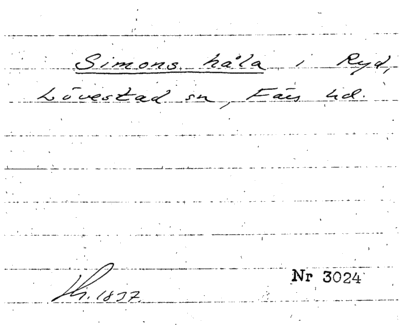 Simons håla i Ryd,
Lövestad sn, Färs hd.
Nr 3024
1897